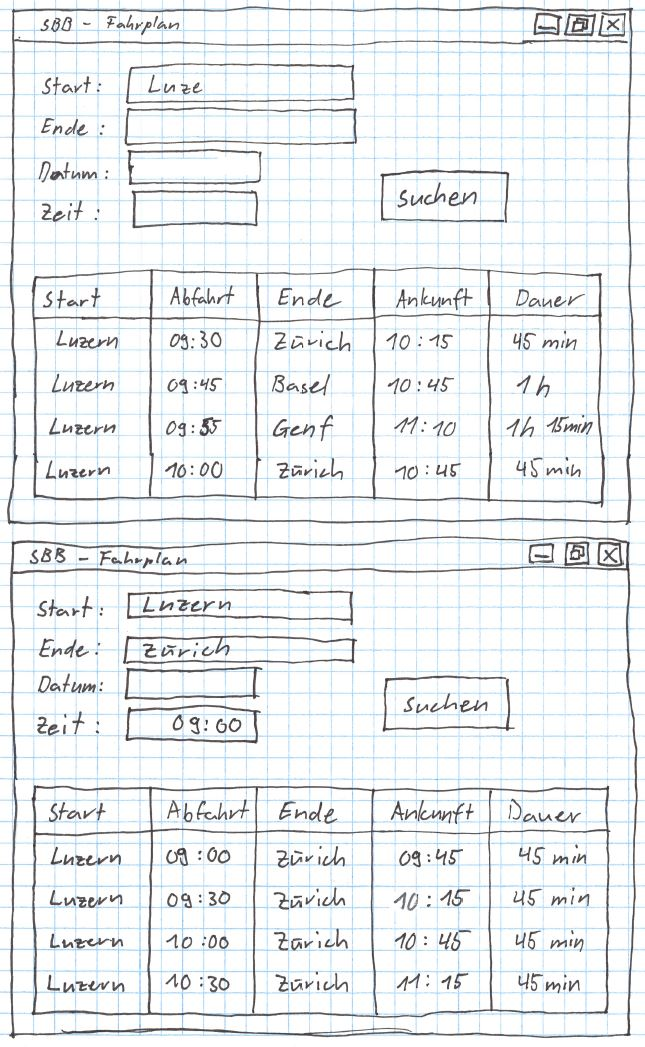 SBB - Fahrplan
Start: Luze
Ende:
Datum:
Zeit:
suchen
Start Abfahrt Ende Ankunft Dauer
Luzern 09:30 Zürich 10:15 45 min
Luzern 09:45 Basel 10:45 1h
Luzern 09:55 Genf 11:10 1h 15min
Luzern 10:00 Zürich 10:45 45 min
SBB - Fahrplan
Start: Luzern
Ende: Zürich
Datum:
Zeit: 09:00
suchen
Start Abfahrt Ende Ankunft Dauer
Luzern 09:00 Zürich 09:45 45 min
Luzern 09:30 Zürich 10:15 45 min
Luzern 10:00 Zürich 10:45 45 min
Luzern 10:30 Zürich 11:15 45 min